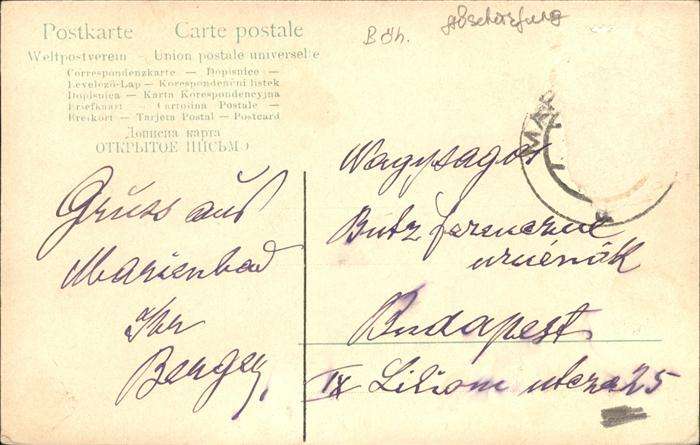 Postkarte Carte postale
Weltpostverein – Union postale universelle
Correspondenzkarte – Dopisnice –
Levelező-Lap – Korespondenční listek
Dopisnica – Karta Korespondencyjna
Briefkaart – Cartolina Postale –
Brevkort – Tarjeta Postal – Postcard
Дописна карта
ОТКРЫТОЕ ПИСЬМО
Böh.
MAR
Gruss aus
Marienbad
Ihr
Berger
Nagysagos
Butz Ferenczne
urnénők
Budapest
IX Liliom utcza 25